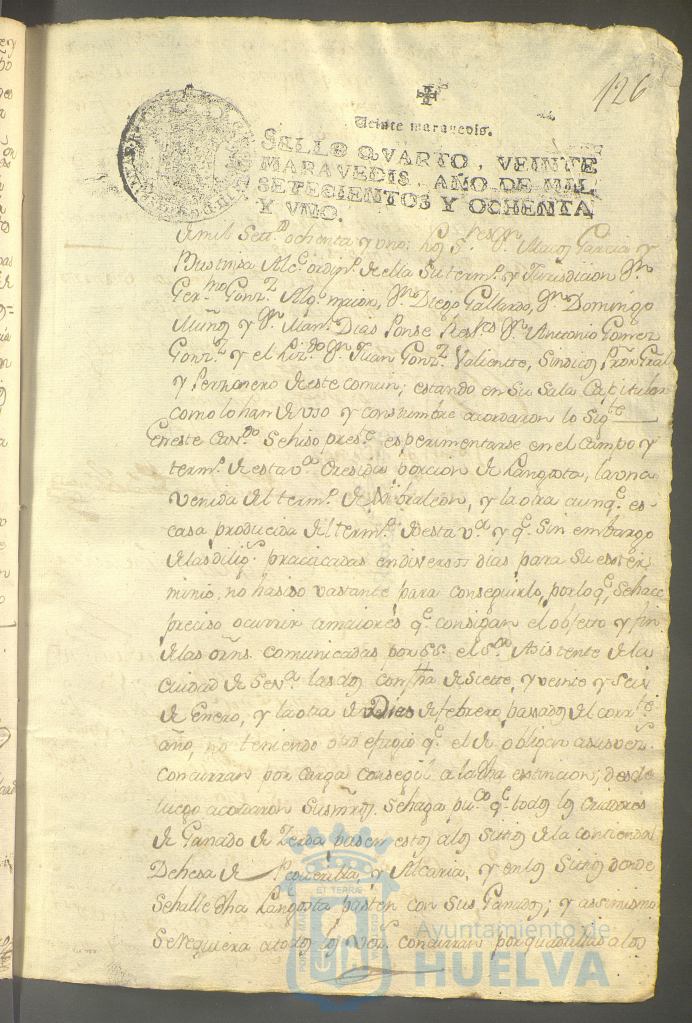 126
Veinte maravedis.
SELLO QVARTO, VEINTE
MARAVEDIS, AÑO DE MIL
SETECIENTOS Y OCHENTA
Y VNO.
ochenta y uno: los Marcos Garcia y
Alc.e ordin.o de ella su term.o y Jurisdicion
Gonz.z Alg.l maior, Dn Diego Gallardo, Dn Domingo
Muños y Dn Man.l Dias Ponse Dn Antonio Gomez
Gonz.z y el Liz.do Dn Juan Gonz.z Valiente, Sindicos Gral
y Personero de este comun; estando en su Sala Capitular
como lo han de uso y constumbre acordaron lo Sig.te
En este Cav.do Se hiso pres.te esperimentarse en el Campo y
term.o de esta v.a cresidas porcion de Langosta, la una
venida del term.o de Gibraleon, y la otra aunq.e es-
casa producida del term.o de esta v.a y q.e Sin embargo
de las dilig.s practicadas en diversos dias para su exster-
minio, no ha sido vastante para conseguirlo, por lo q.e Se hace
preciso ocurrir a maiores q.e consigan el objeto y fin
de las orns. comunicadas por el S.or Asistente de la
Ciudad de Sev.a las dos con fha de Siette, y veinte y Seis
de Enero, y la otra de Dies de febrero passado del corr.te
año, no teniendo otro efugio q.e el de obligar a sus vez.s
concurran por carga consegil a la dha estincion; desde
luego acordaron Sus mrds. Se haga pu.co q.e todos los criadores
de Ganado de Zerda pasen estos a los Sitios de la
Dehesa de y Alcaria, y en los Sitios donde
Se halle dha Langosta pasten con Sus Ganados; y assimismo
Se requiera a todos los vez.s concurran por quadrillas a los
Ayuntamiento de
HUELVA